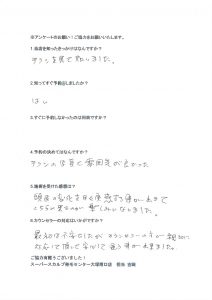 ※アンケートのお願い!ご協力をお願いいたします。
1.当店を知ったきっかけはなんですか?
チラシを見て知りました。
2.知ってすぐ予約をしましたか?
はい
3.すぐに予約しなかったのは何故ですか?
4.予約の決めてはなんですか?
チラシの写真と雰囲気が良かった
5.施術を受けた感想は?
頭皮の変化を日々実感する事が出来て
こちらに来るのが楽しみになりました。
6.カウンセラーの対応はいかがですか?
最初は不安でしたが カウンセラーの方が親切に
対応して頂いて安心して通う事が出来ました。
ご協力有難うございました!
スーパースカルプ発毛センター大塚南口店 担当 吉崎